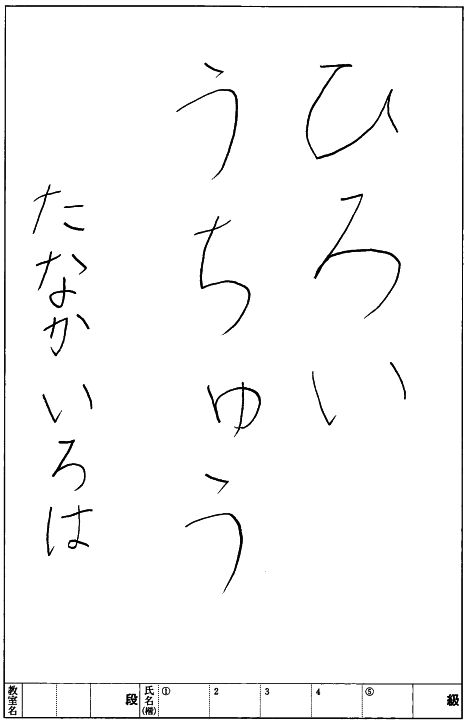 ひろい
うちゅう
たなかいろは
教室名 段 氏名(欄) ① 2 3 4 ⑤ 級